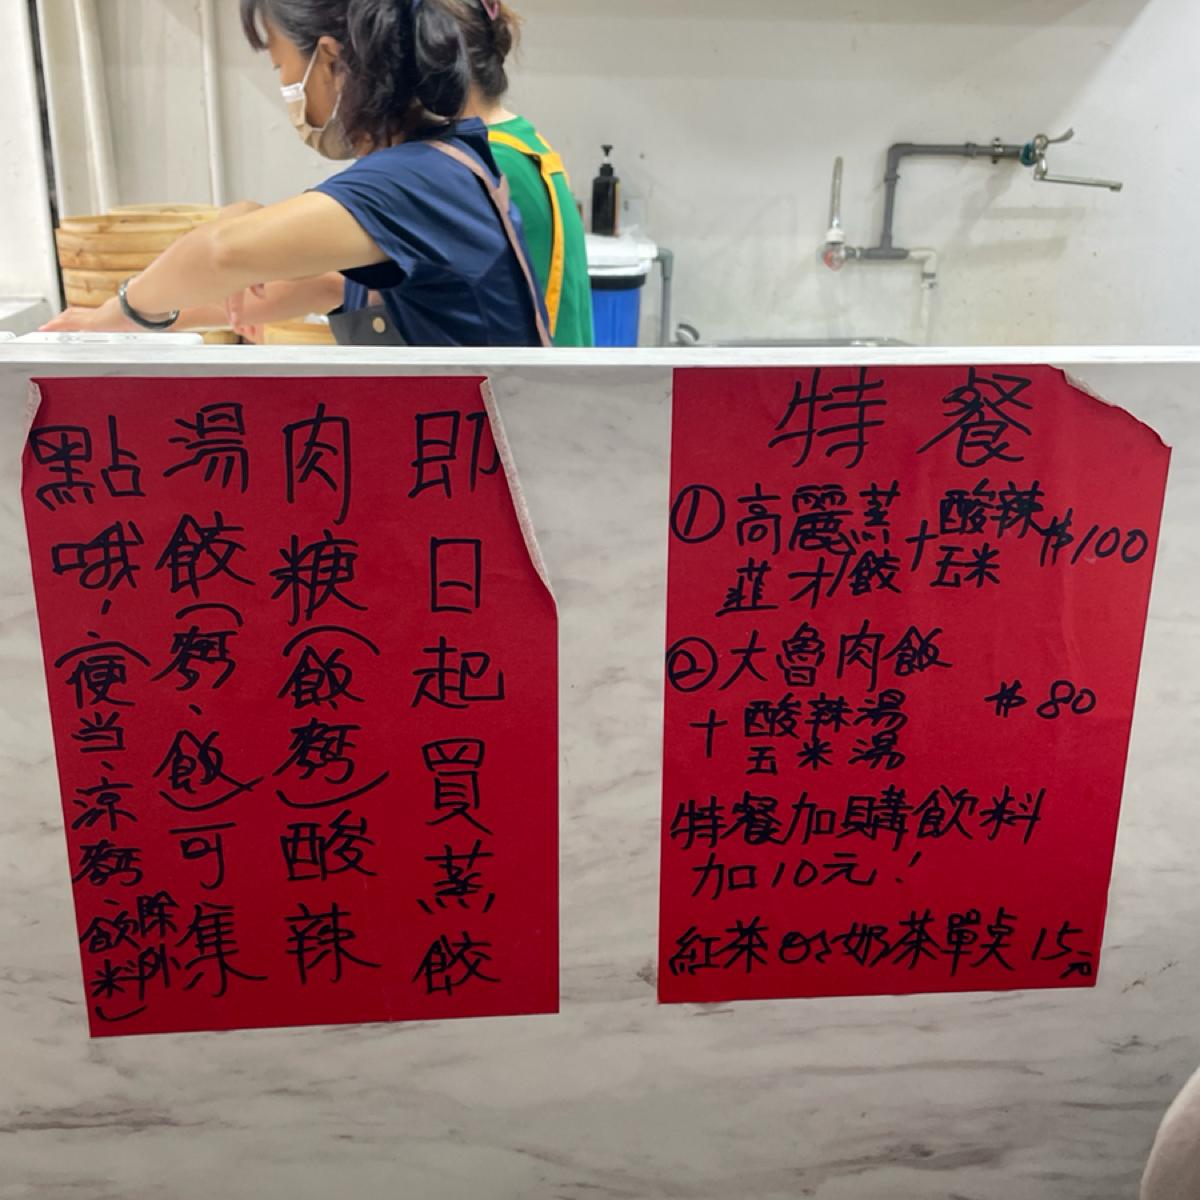 即日起買蒸餃
肉糖(飯麪)酸辣
湯餃(麪、飯)可集
點哦!(便当、涼麪、飲料除外)
特餐
①高麗蒸 + 酸辣 $100
韮才餃 玉米
②大魯肉飯
+酸辣湯 $80
玉米湯
特餐加購飲料
加10元!
紅茶or奶茶單点15元